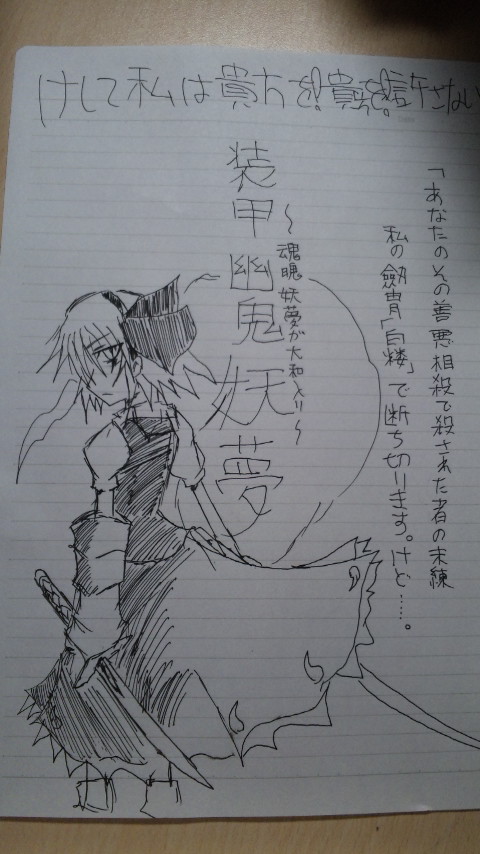 けして私は貴方を!貴方を!許さない
「あなたのその善悪相殺で殺された者の未練
私の劔冑「白楼」で断ち切ります。けど……。
～魂魄 妖夢が大和入り～
装甲幽鬼妖夢